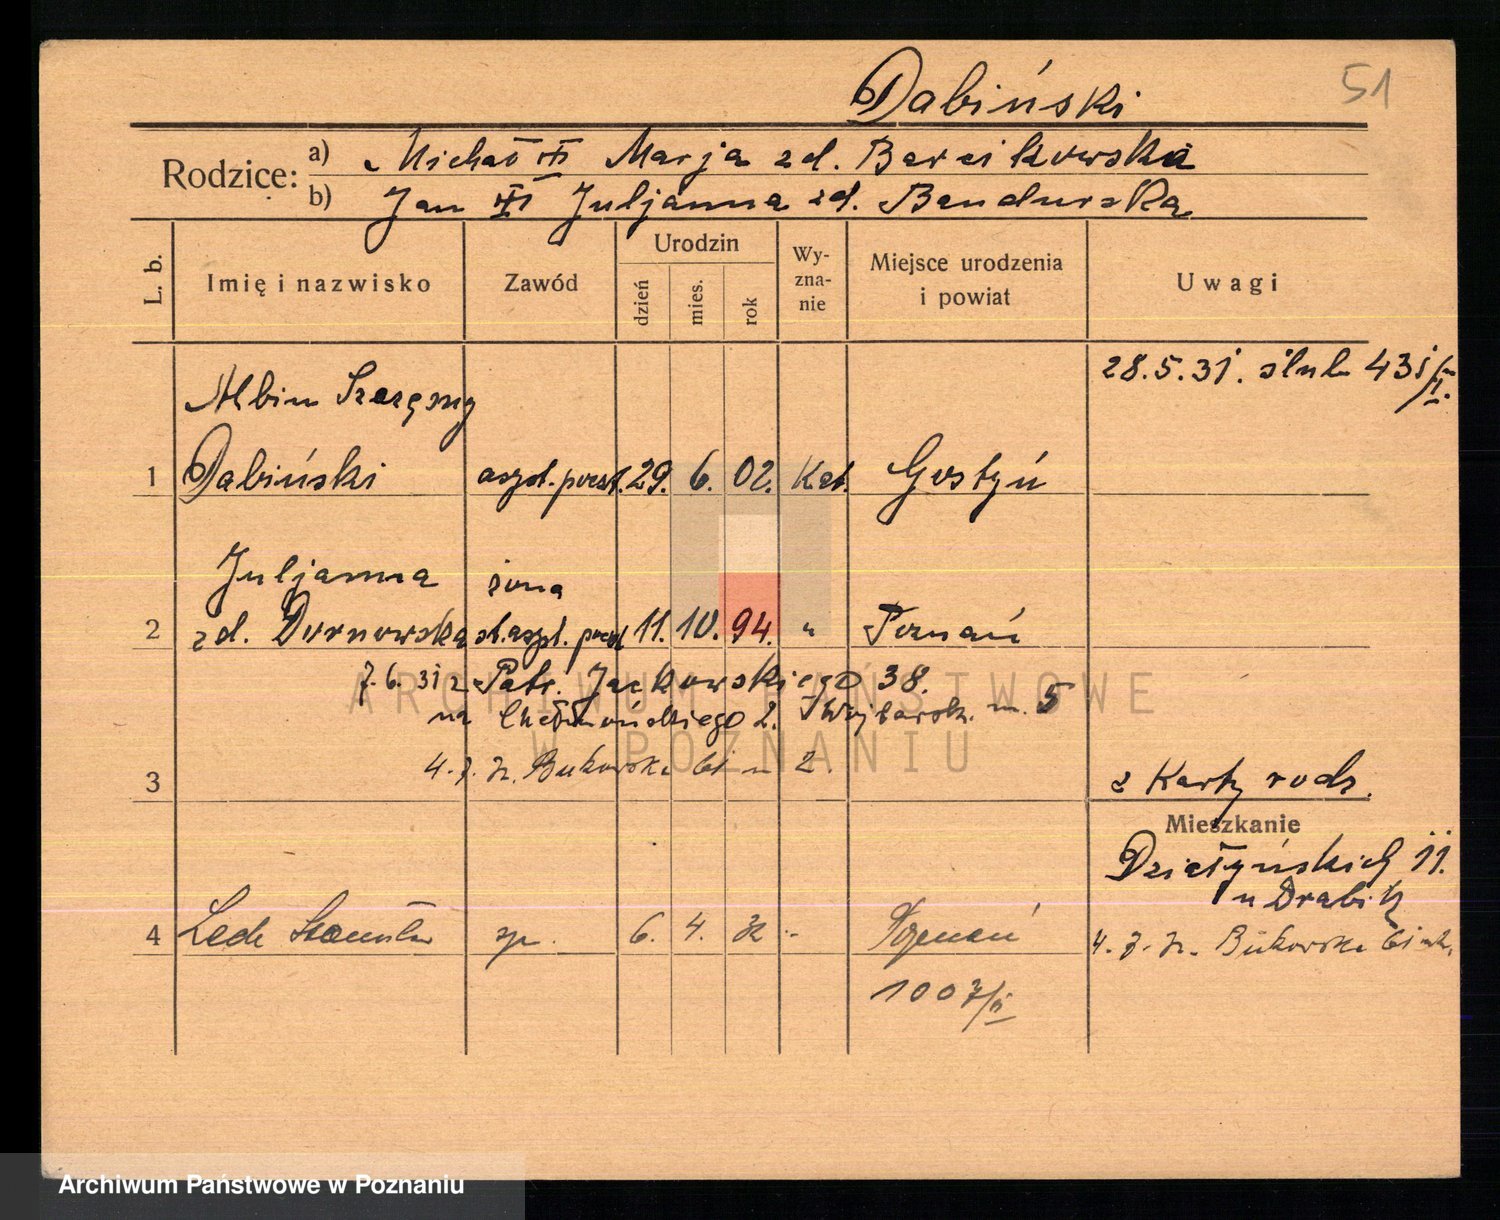 Dabiński 51
Rodzice: a) Michał Marja zd. Barcikowska
b) Jan Juljanna zd. Bandurska
L. b. Imię i nazwisko Zawód Urodzin dzień mies. rok Wy-zna-nie Miejsce urodzenia i powiat Uwagi
28.5.31. ślub 431/II.
Albin Szczęsny
1 Dabiński aszst. poczt. 29. 6. 02. Kat. Gostyń
Juljanna żona
2 zd. Durnowska st. aszt. poczt 11. 10. 94. " Poznań
7.6.31 z Patr. Jackowskiego 38.
na Chełmońskiego 2. m. 5
4.7. Bukowska 61 m 2.
3 z Karty rodz.
Mieszkanie
Działyńskich 11.
u Drabik
4 Lech Stanisław 6. 4. Poznań
4. 7. Bukowska 61
1007/II
ARCHIWUM PAŃSTWOWE
W POZNANIU
Archiwum Państwowe w Poznaniu